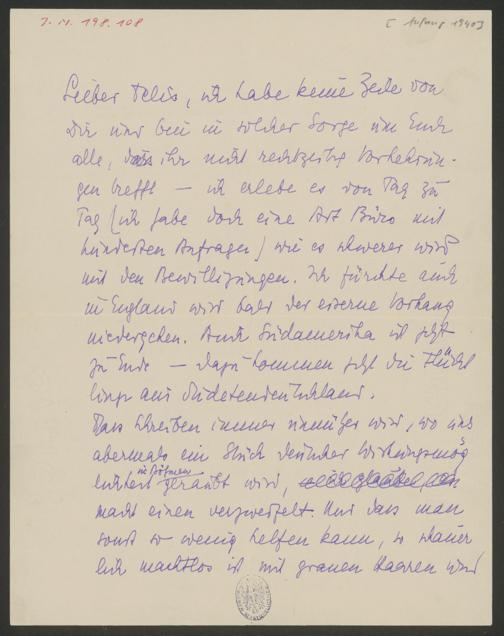 J.N. 198.108
[Anfang 1940]
Lieber Felix, ich habe keine Zeile von
Dir und bin in solcher Sorge um Euch
alle, dass ihr nicht rechtzeitig Vorkehrun-
gen trefft – ich erlebe es von Tag zu
Tag (ich habe doch eine Art Büro mit
hunderten Anfragen) wie es schwerer wird
mit den Bewilligungen. Ich fürchte auch
in England wird bald der eiserne Vorhang
niedergehen. Auch Südamerika ist jetzt
zu Ende – dazu kommen jetzt die Flücht
linge aus Sudetendeutschland.
Dass Schreiben immer unnützer wird, wo uns
abermals ein Stück deutscher Wirkungsmög
in Böhmen
lichkeit geraubt wird,
macht einen verzweifelt. Und dass man
sonst so wenig helfen kann, so schauer
lich machtlos ist mit grauen Haaren und